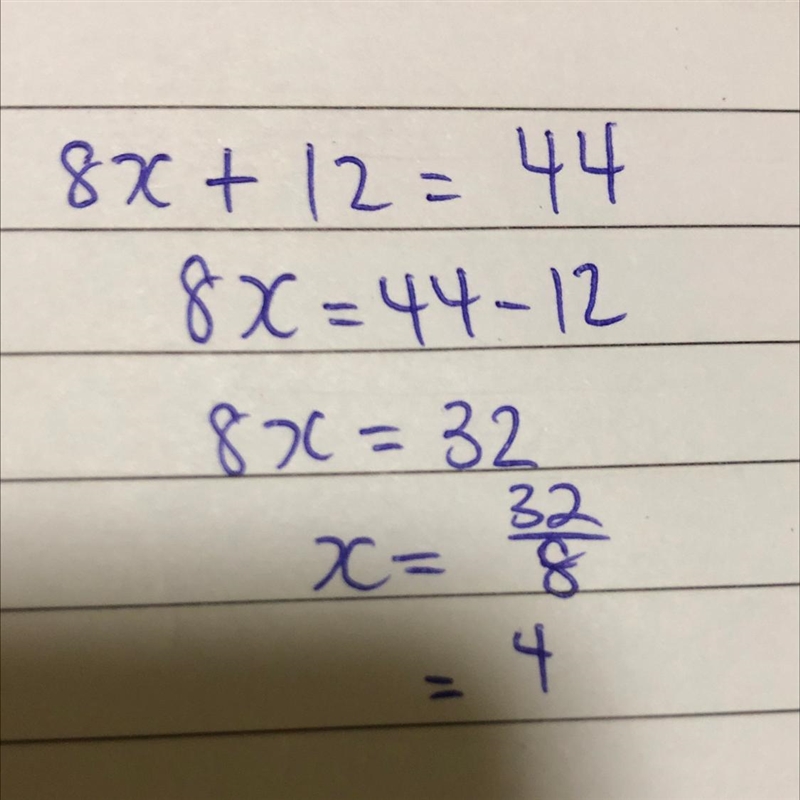 8x + 12 = 44
8x = 44 - 12
8x = 32
x = 32/8
= 4